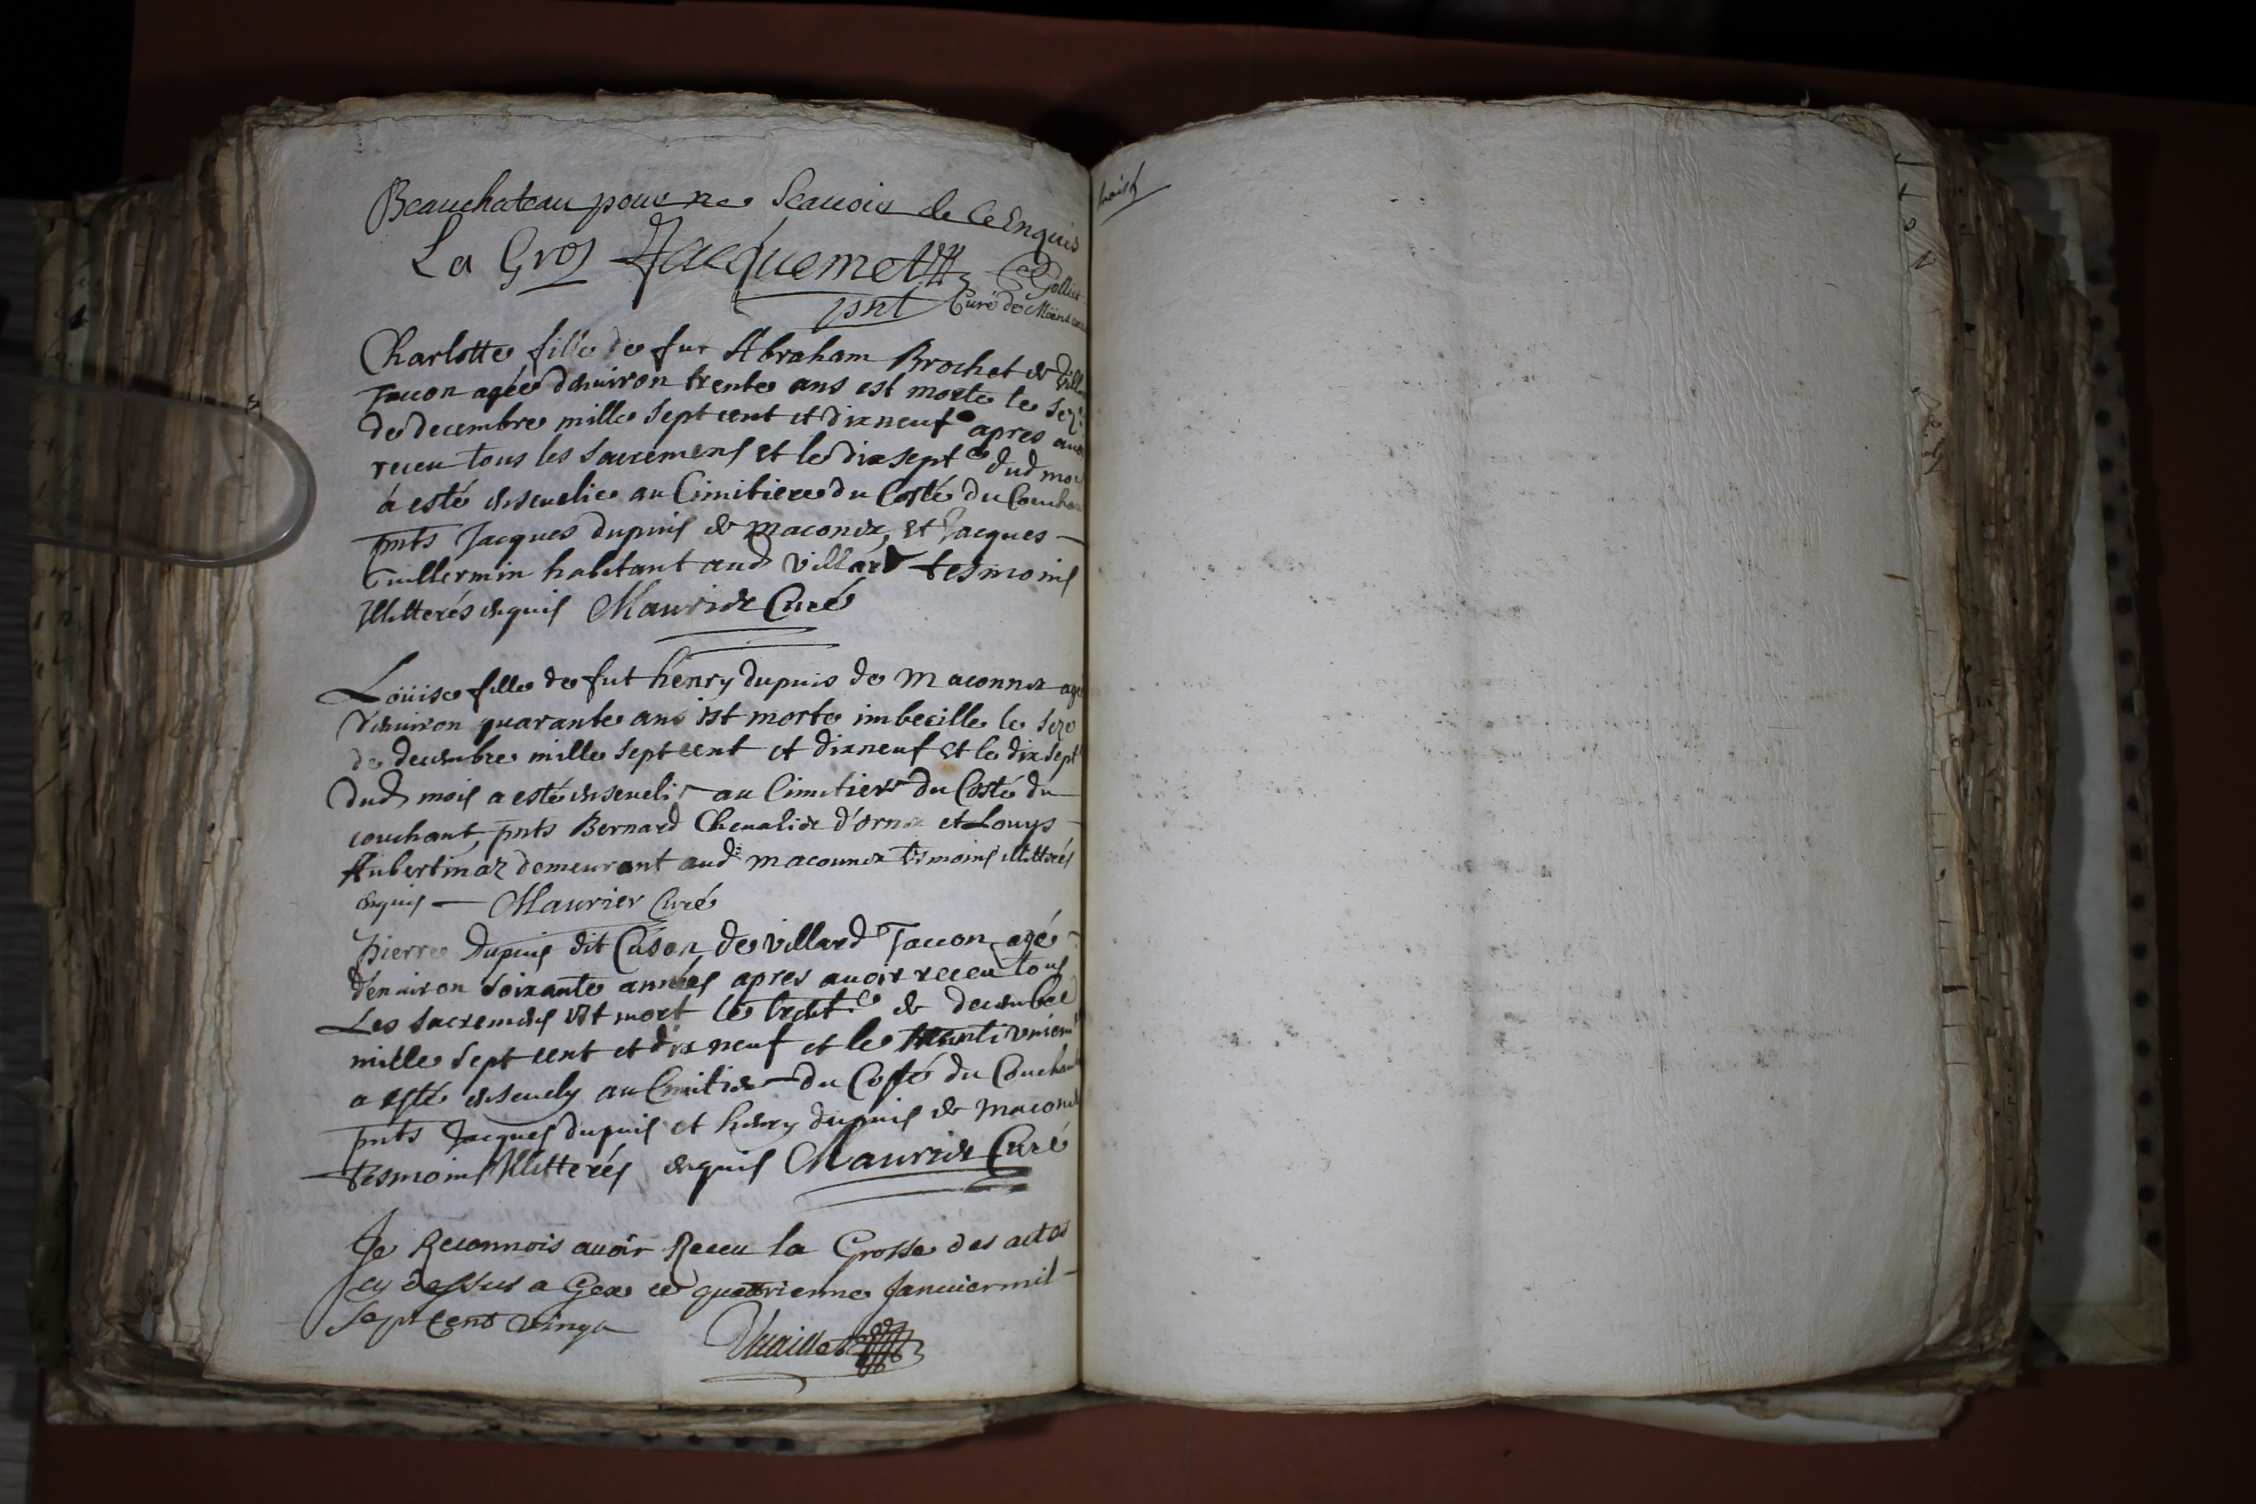 Beauchateau pour ne Scauoir de ce Enquis
La Gros Jacquemet
pnt
Curé de
Charlotte fille de fut Abraham Brochet de
Taccon agée denuiron trente ans est morte le
de decembre mille sept cent et dixneuf apres
receu tous les sacremens et le dixsept e dud
á esté enseuelie au Cimitiere du Costé du
pnts Jacques dupuis de maconex, et Jacques
Guillermin habitant aud villard tesmoins
Illitterés enquis Maurier Curé
Loüise fille de fut henry dupuis de maconnex
d'enuiron quarante ans est morte imbecille le
de decembre mille sept cent et dixneuf et le dixsept
dud mois a esté enseuelie au Cimitiere du Costé du
couchant, pnts Bernard Cheualier d'ornex et Louys
Aubertinaz demeurant aud maconnex tesmoins illitterés
enquis Maurier Curé
pierre dupuis dit Cuson de villard Taccon agé
d'enuiron soixante années apres auoir receu tous
Les sacremens est mort le trent e de decembre
mille sept cent et dix neuf et le trente uniem
a esté enseuely au Cimitier du Costé du Couchant
pnts Jacques dupuis et henry dupuis de
tesmoins Illitterés enquis Maurier Curé
Je Reconnois auoir Receu la Grosse des actes
cy dessus a Gex ce quatrienne Januier mil
sept cent vingt